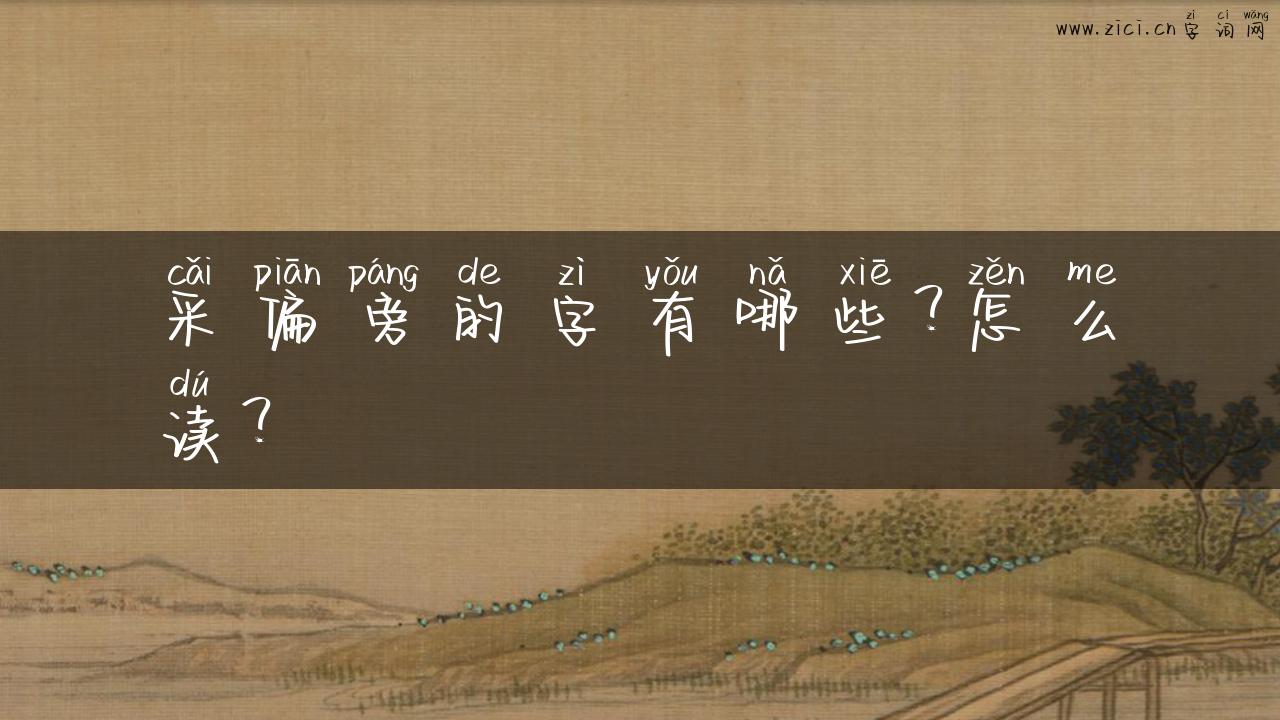 zì cí wǎng
www.zici.cn字词网
cǎi piān páng de zì yǒu nǎ xiē zěn me
采偏旁的字有哪些?怎么
dú
读?